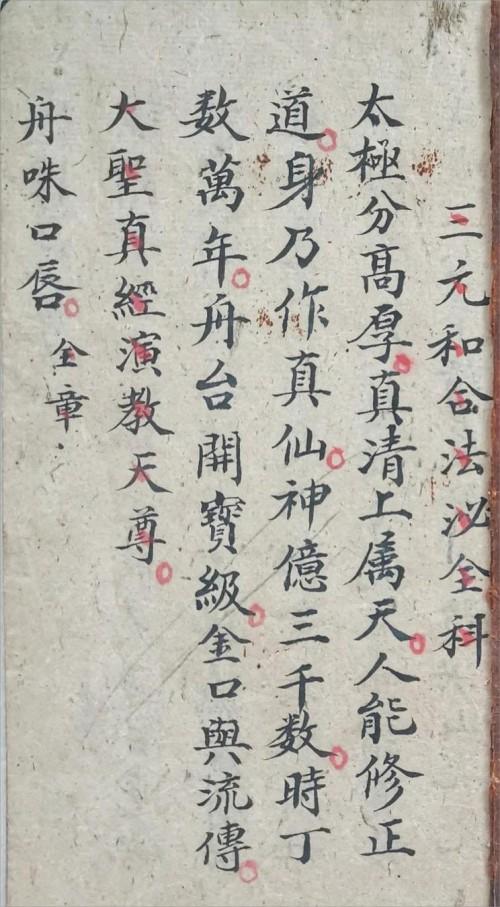 三元和合法泌全科
太極分高厚真清上属天人能修正
道身乃作真仙神億三千数時丁
数萬年舟台開寳級金口與流傳
大聖真經演教天尊
舟咮口唇 全章